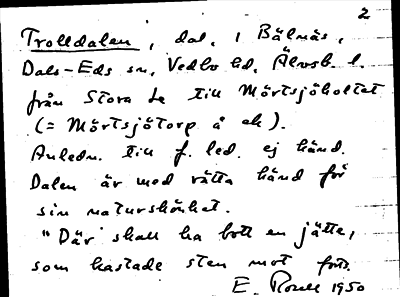 2
Trolldalen, dal, i Bälnäs,
Dals-Eds sn, Vedbo hd, Älvsb. l.
från Stora Le till Mörtsjöholtet
(= Mörtsjötorp å ek).
Anledn. till f. led. ej känd.
Dalen är med rätta känd för
sin naturskönhet.
"Där skall ha bott en jätte,
som kastade sten mot forts.
E. 1950